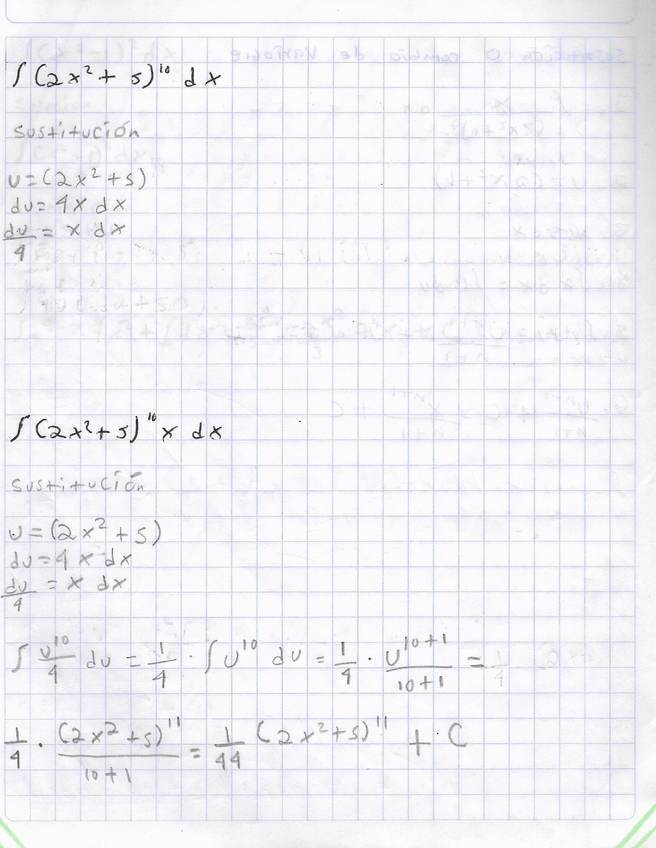 ∫(2x² + 5)¹⁰ dx
sustitución
u = (2x² + 5)
du = 4x dx
du/4 = x dx
∫(2x² + 5)¹⁰ x dx
sustitución
u = (2x² + 5)
du = 4x dx
du/4 = x dx
∫ u¹⁰/4 du = 1/4 · ∫ u¹⁰ du = 1/4 · u¹⁰⁺¹/10+1 =
1/4 · (2x² + 5)¹¹/10+1 = 1/44 (2x² + 5)¹¹ + C